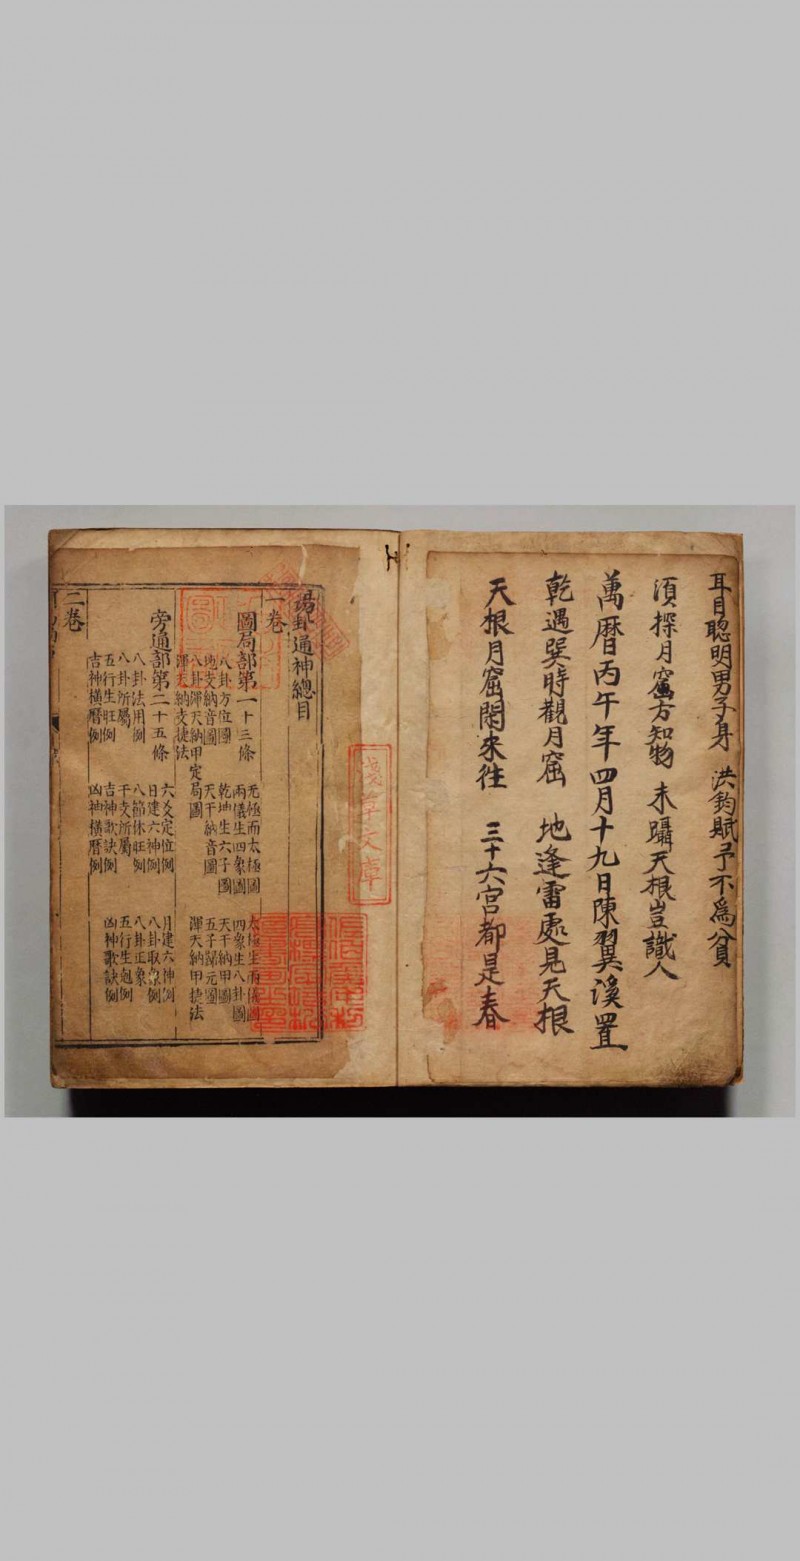 耳目聰明男子身　洪鈞賦予不爲貧
須探月窟方知物　未躡天根豈識人
萬暦丙午年四月十九日陳翼溪置
乾遇巽時觀月窟　地逢雷處見天根
天根月窟閑來往　三十六宮都是春
淺草文庫
易卦通神總目
一卷
圖局部第一十三條
无極而太極圖　太極生兩儀圖
兩儀生四象圖　四象生八卦圖
八卦方位圖　乾坤生六子圖　天干納甲圖
地支納音圖　天干納音圖　五子歸元圖
八卦渾天納甲定局圖　渾天納甲捷法
渾天納支捷法
旁通部第二十五條
六爻定位例　月建六神例
日建六神例　八卦取象例
八卦法用例　八節休旺例　八卦正象例
八卦所屬例　干支所屬例　五行生剋例
五行生旺例　吉神歌訣例　凶神歌訣例
吉神橫曆例　凶神橫曆例
二卷